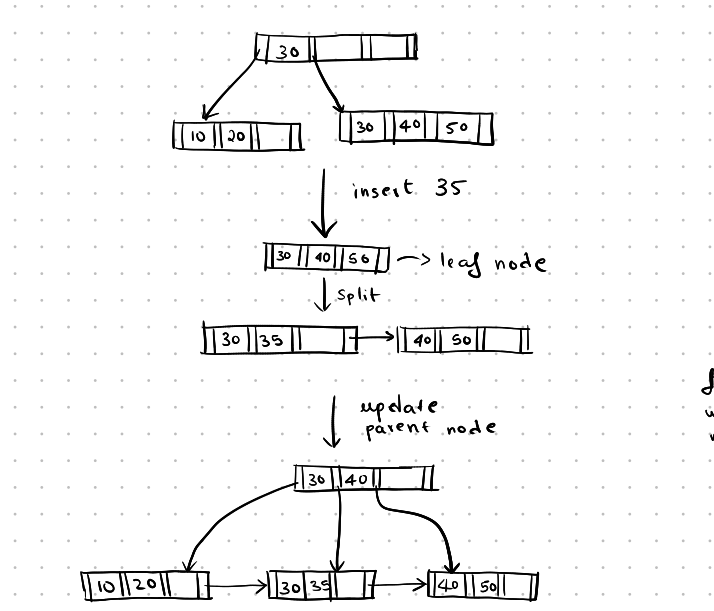 30
10 20
30 40 50
insert 35
30 40 50 -> leaf node
split
30 35
40 50
update
parent node
30 40
10 20
30 35
40 50